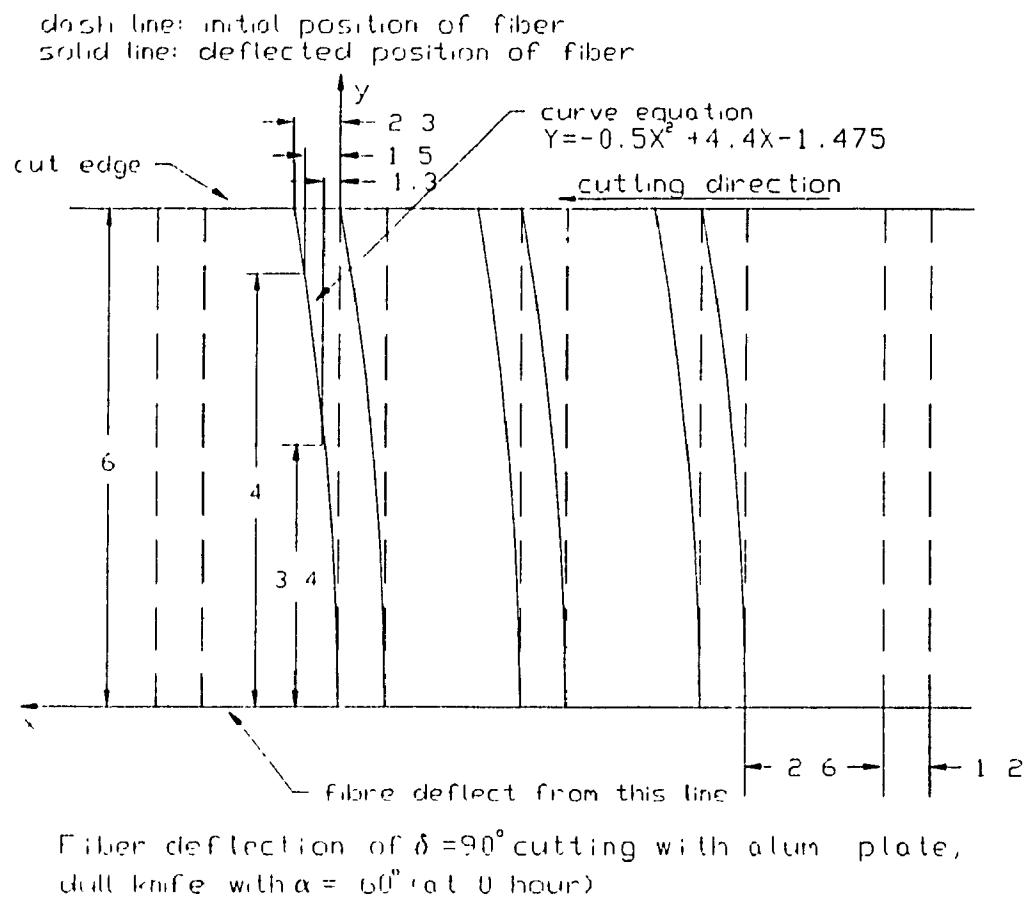 dash line: initial position of fiber
solid line: deflected position of fiber
y
2 3
curve equation
Y=-0.5X² +4.4X-1.475
1 5
cut edge
1.3
cutting direction
6
4
3 4
x
2 6
1 2
fibre deflect from this line
Fiber deflection of δ =90° cutting with alum plate,
dull knife with α = 60° (at 0 hour)